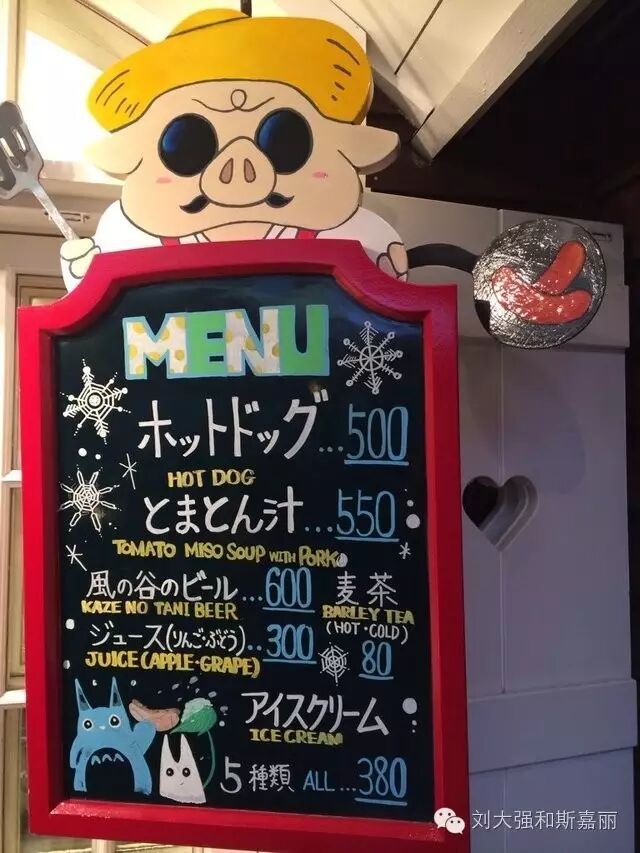 MENU
ホットドッグ...500
HOT DOG
とまとん汁...550
TOMATO MISO SOUP WITH PORK
風の谷のビール...600
KAZE NO TANI BEER
麦茶
BARLEY TEA
(HOT・COLD)
80
ジュース(りんご・ぶどう)...300
JUICE (APPLE・GRAPE)
アイスクリーム
ICE CREAM
5種類 ALL...380
刘大强和斯嘉丽